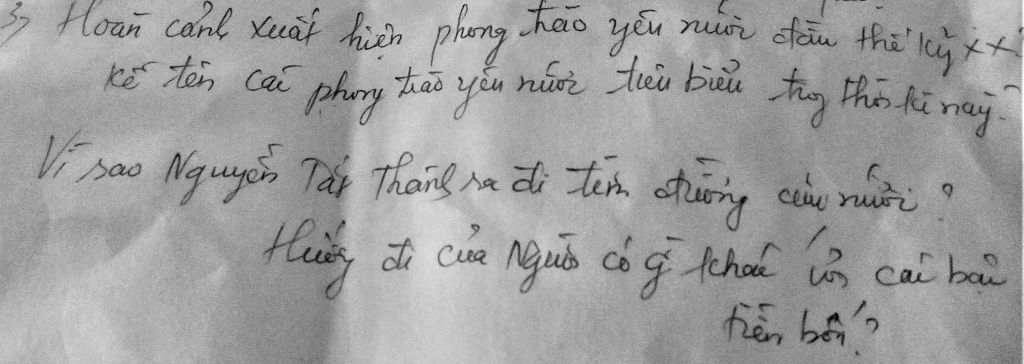 3, Hoàn cảnh xuất hiện phong trào yêu nước đầu thế kỷ XX?
Kể tên các phong trào yêu nước tiêu biểu trog thời kì này?
Vì sao Nguyễn Tất Thành ra đi tìm đường cứu nước?
Hướng đi của Người có gì khác với các bậc
tiền bối?